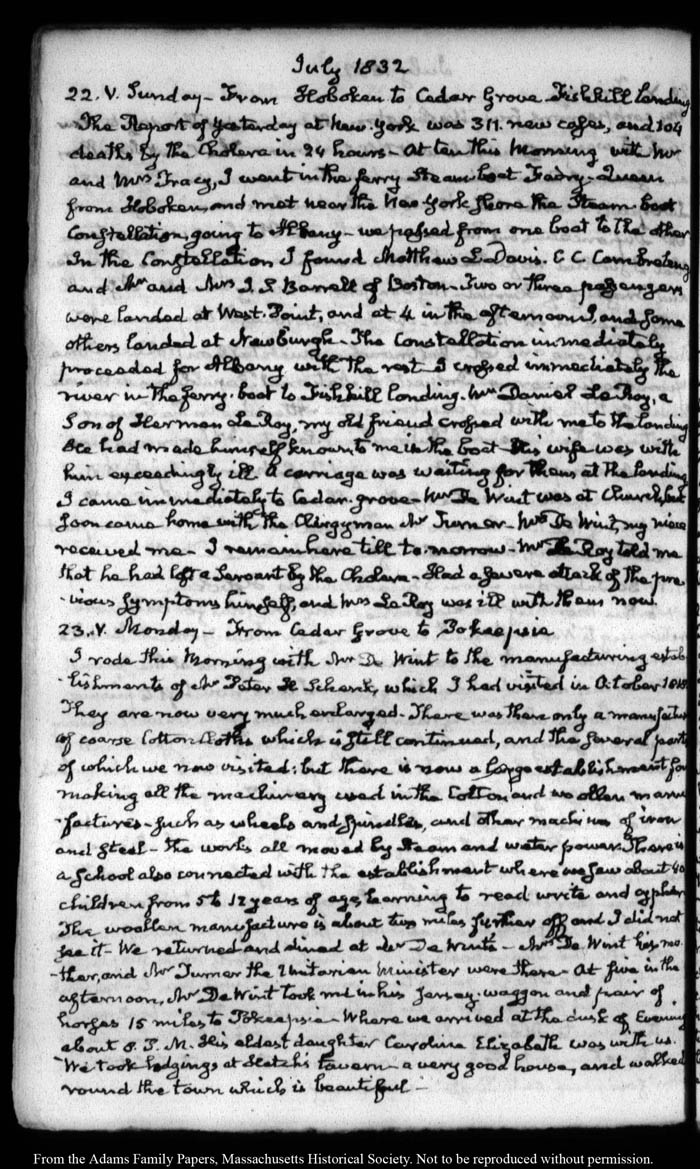 July 1832
22. V. Sunday - From Hoboken to Cedar Grove Fishkill landing
The Report of yesterday at New-York was 311. new cases, and 104
deaths by the Cholera in 24 hours - At ten this Morning with Mr
and Mrs Tracy, I went in the ferry Steam-boat Fairy-Queen
from Hoboken, and met near the New-York shore the Steam-boat
Constellation, going to Albany - we passed from one boat to the other
In the Constellation I found Matthew L. Davis. C. C. Cambreleng
and Mr and Mrs Barrell of Boston. Two or three passengers
were landed at West-Point, and at 4 in the afternoon I, and some
others landed at NewBurgh - The Constellation immediately
proceeded for Albany with the rest. I crossed immediately the
river in the ferry-boat to Fishkill landing. Mr Daniel Le Roy, a
Son of Herman Le Roy, my old friend crossed with me to the landing
He had made himself known to me in the boat His wife was with
him exceedingly ill A carriage was waiting for them at the landing
I came immediately to Cedar-grove - Mr De Wint was at Church, but
soon came home with the Clergyman Mr Turner - Mrs De Wint, my niece
received me - I remain here till to-morrow - Mr Le Roy told me
that he had lost a Servant by the Cholera - Had a severe attack of the pre
-vious symptoms himself, and Mrs Le Roy was ill with them now.
23. V. Monday - From Cedar Grove to Pokeepsie
I rode this Morning with Mr De Wint to the manufacturing estab-
-lishments of Mr Peter H Schenk, which I had visited in October
They are now very much enlarged - There was then only a manufacture
of coarse Cotton Cloths which is still continued, and the several parts
of which we now visited; but there is now a large establishment for
making all the machinery used in the Cotton and woollen manu
-factures - such as wheels and spindles, and other machines of iron
and steel - the works all moved by steam and water power. There is
a school also connected with the establishment where we saw about 40
children from 5 to 12 years of age, learning to read write and cypher
The woollen manufacture is about two miles further off and I did not
see it - We returned and dined at Mr De Wint's - Mr De Wint his mo-
-ther, and Mr Turner the Unitarian Minister were there - At five in the
afternoon, Mr De Wint took me in his Jersey-waggon and pair of
horses 15 miles to Pokeepsie - Where we arrived at the dusk of Evening
about 8. P. M. His eldest daughter Caroline Elizabeth was with us.
We took lodgings at Hatch's tavern - a very good house, and walked
round the town which is beautiful -
From the Adams Family Papers, Massachusetts Historical Society. Not to be reproduced without permission.